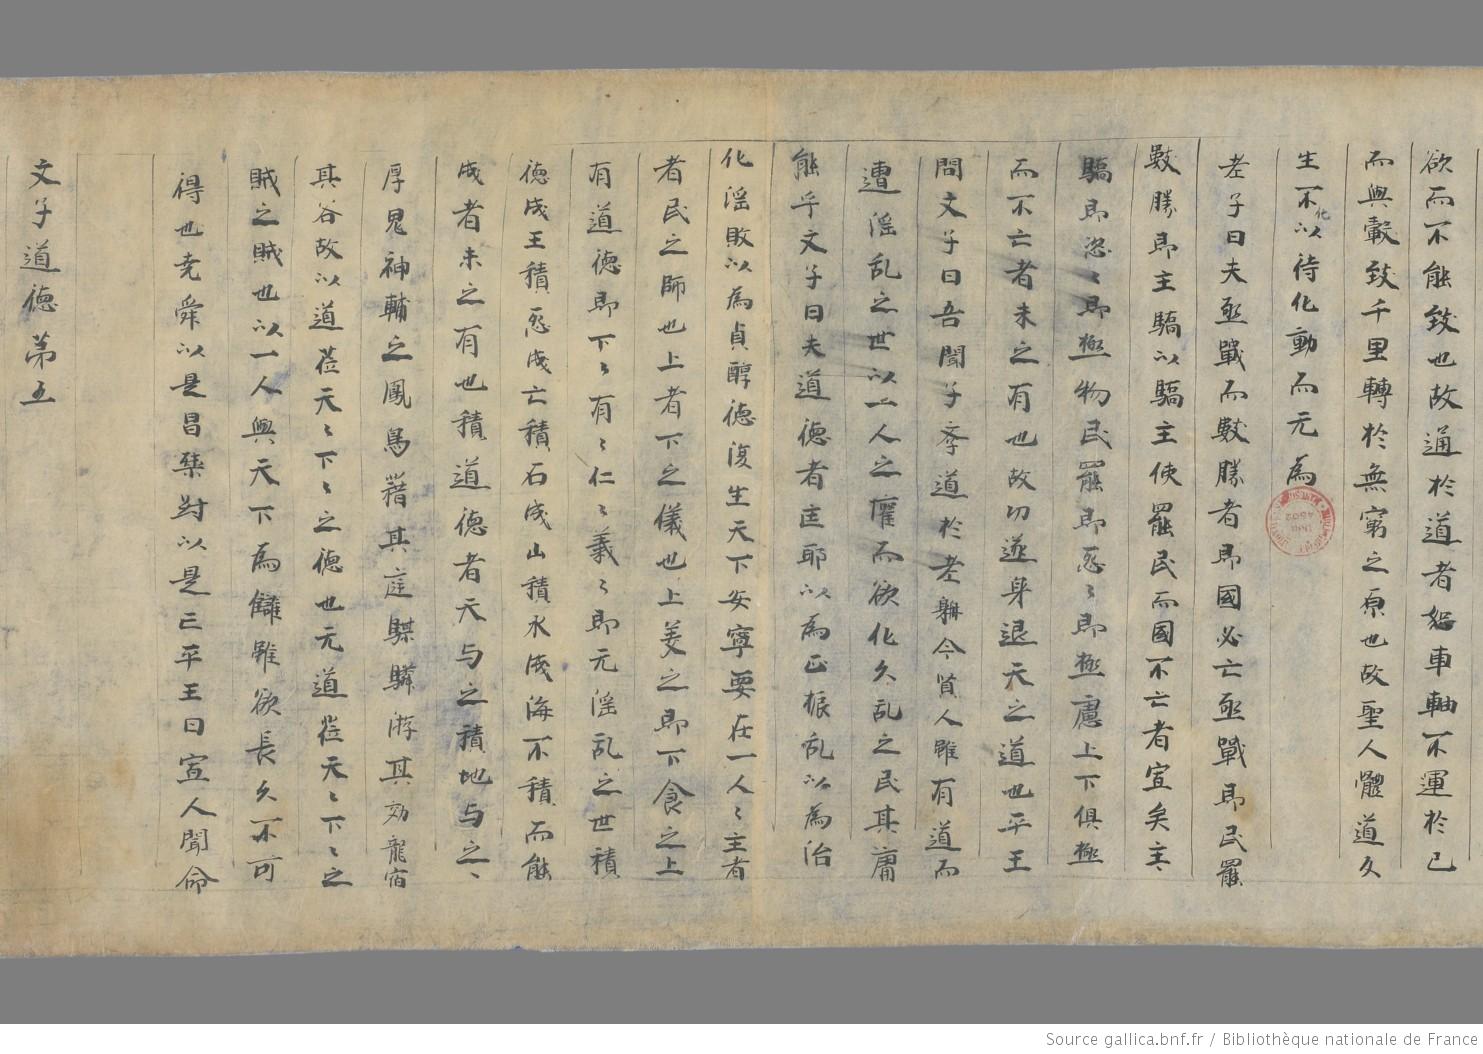 欲而不能致也故通於道者恕車軸不運於已
而與轂致千里轉於無窮之原也故聖人體道久
生不化以待化動而无為
老子曰夫亟戰而數勝者即國必亡亟戰即民罷
數勝即主驕以驕主使罷民而國不亡者寡矣主〻
驕即恣〻即極物民罷即怨〻即極慮上下俱極
而不亡者未之有也故功遂身退天之道也平王
問文子曰吾聞子學道於老聃今賢人雖有道而
遭滛乱之世以一人之權而欲化久乱之民其庸
能乎文子曰夫道德者匡耶以為正振乱以為治
化滛敗以為貞醇德復生天下安寧要在一人〻主者
者民之師也上者下之儀也上美之即下食之上
有道德即下〻有〻仁〻義〻即无滛乱之世積
德成王積怨成亡積石成山積水成海不積而能
成者未之有也積道德者天与之積地与之〻
厚鬼神輔之鳳鳥藉其庭騏驎游其効龍宿
其谷故以道莅天〻下〻之德也无道莅天〻下〻之
賊之賊也以一人與天下為讎雖欲長久不可
得也堯舜以是昌桀紂以是亡平王曰寡人聞命
文子道德第五
Source gallica.bnf.fr / Bibliothèque nationale de France